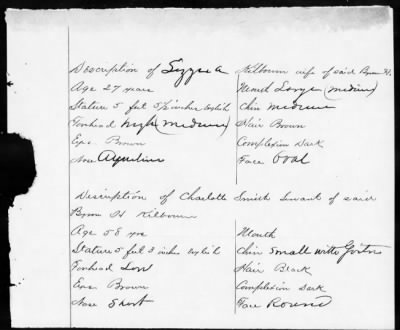 Description of Lizzie A Kilbourn wife of said Byron H.
Age 27 years
Mouth Large (medium)
Stature 5 feet 5½ inches English
Chin medium
Forehead high (medium)
Hair Brown
Eyes Brown
Complexion Dark
Nose Aquiline
Face Oval
Description of Charlotte Smith servant of said
Byron H Kilbourn
Age 58 yrs
Mouth
Stature 5 feet 3 inches English
Chin Small with
Forehead Low
Hair Black
Eyes Brown
Complexion Dark
Nose Short
Face Round